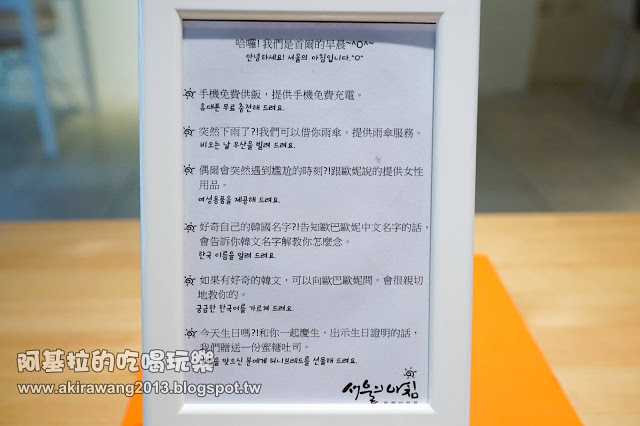 哈囉! 我們是首爾的早晨~^O^~
안녕하세요! 서울의 아침입니다.^O^
手機免費供飯，提供手機免費充電。
휴대폰 무료 충전해 드려요.
突然下雨了?!我們可以借你雨傘。提供雨傘服務。
비오는 날 우산을 빌려 드려요.
偶爾會突然遇到尷尬的時刻?!跟歐妮說的提供女性
用品。
여성용품을 제공해 드려요.
好奇自己的韓國名字?!告知歐巴歐妮中文名字的話，
會告訴你韓文名字解教你怎麼念。
한국 이름을 알려 드려요.
如果有好奇的韓文，可以向歐巴歐妮問。會很親切
地教你的。
궁금한 한국어를 가르게 드려요.
今天生日嗎?!和你一起慶生，出示生日證明的話，
我們贈送一份蜜糖吐司。
맞으신 분에게 허니브레드를 선물해 드려요.
서울의 아침
阿基拉的吃喝玩樂
www.akirawang2013.blogspot.tw